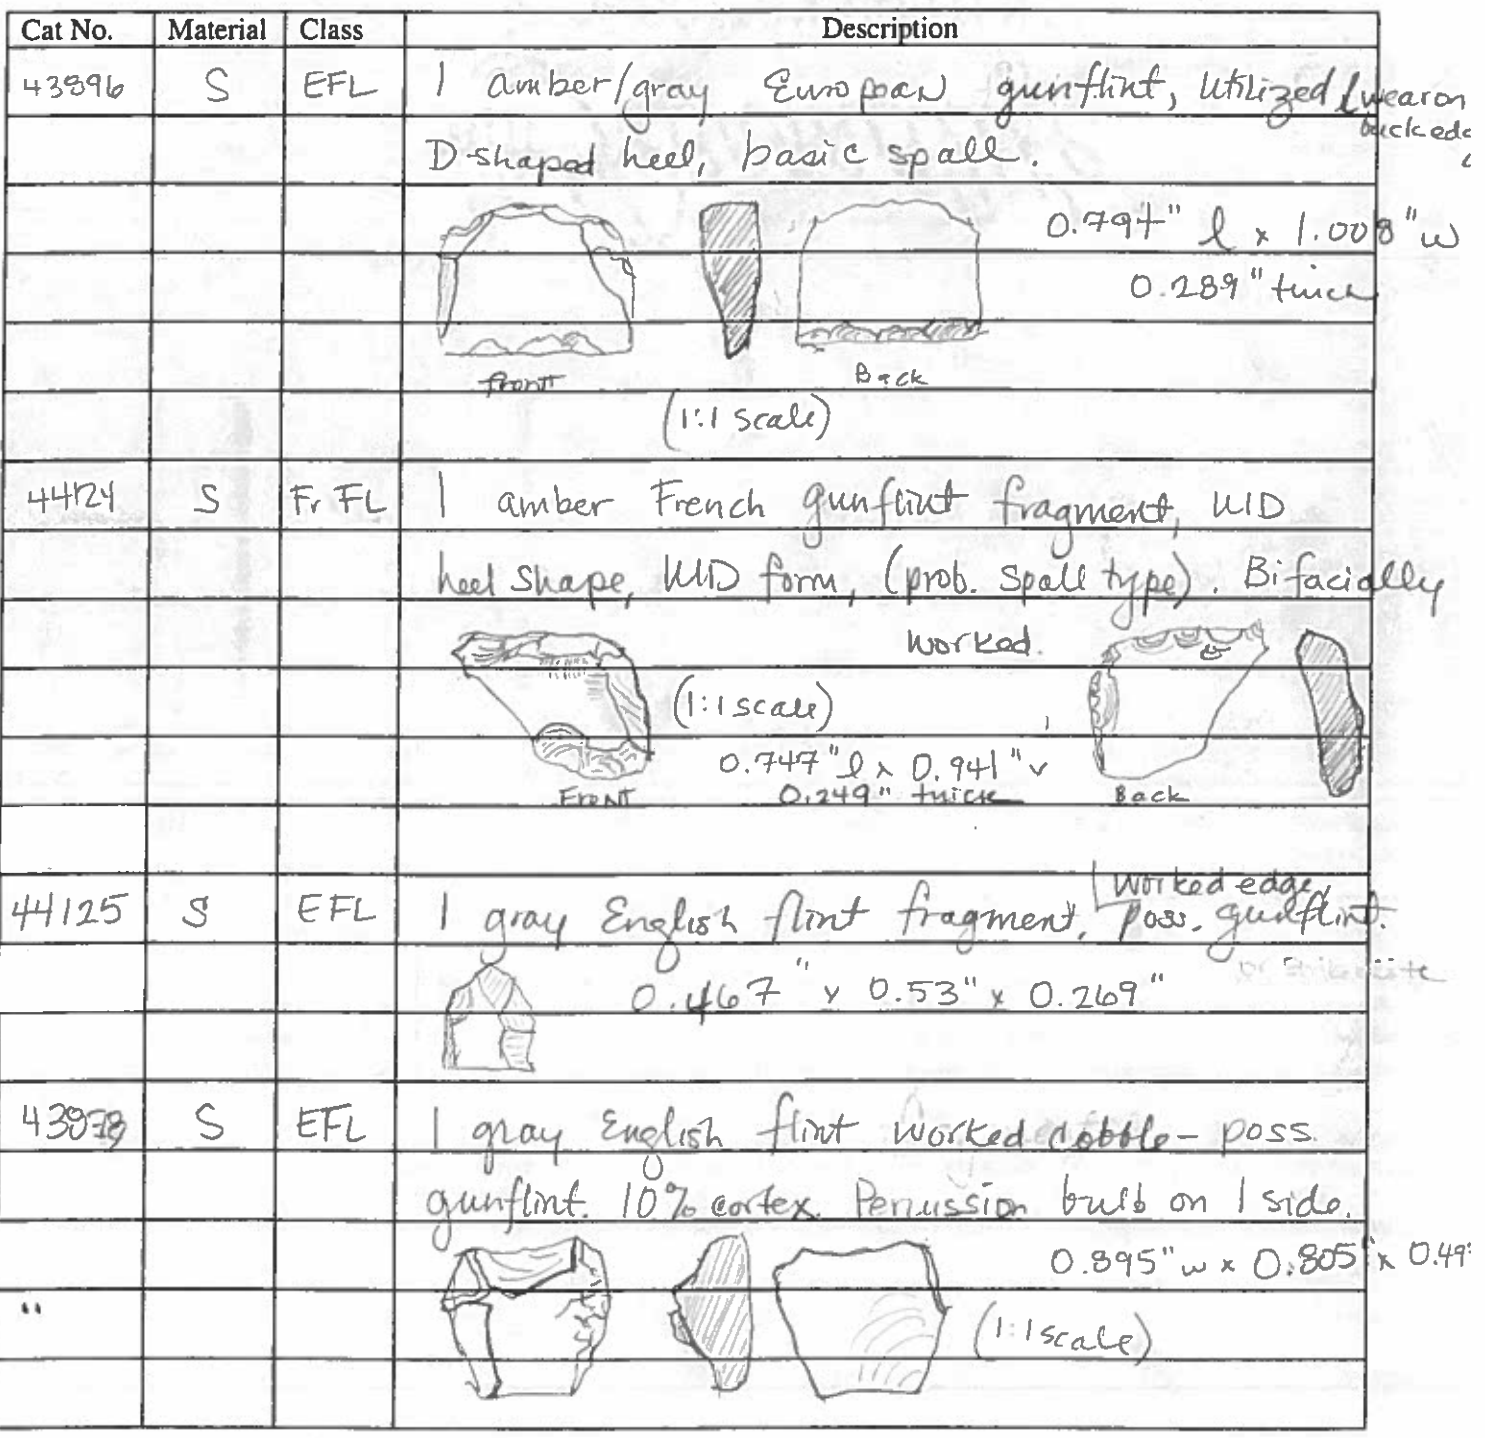 Cat No. Material Class Description
43896 S EFL 1 amber/gray European gunflint, utilized wear on
back edg
D-shaped heel, basic spall.
0.794" l x 1.008" w
0.289" thick
front Back
(1:1 scale)
44124 S Fr FL 1 amber French gunflint fragment, UID
heel shape, UID form, (prob. spall type). Bifacially
worked.
(1:1 scale)
0.747" l x 0.941" w
0.249" thick
Front Back
worked edge,
44125 S EFL 1 gray English flint fragment, poss. gunflint.
0.467" x 0.53" x 0.269"
S EFL 1 gray English flint worked cobble - poss.
gunflint. 10% cortex. Percussion bulb on 1 side.
0.895" w x 0.805" x 0.49
"
(1:1 scale)